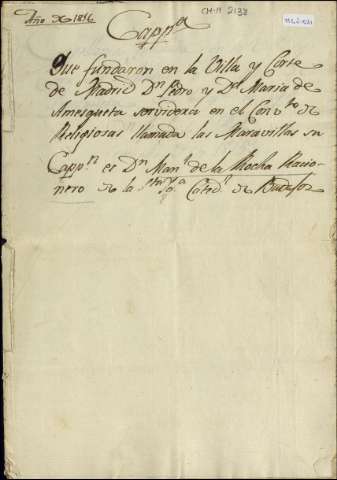 Año de 1816
CM-M 2138
Capp.ª
Que fundaron en la Villa y Corte
de Madrid Dn Pedro y Dª Maria de
Amesqueta servidera en el Conv.to de
Religiosas llamada las Maravillas su
Capp.n es Dn Man.l de la Rocha Racio-
nero de la Sta Ygª Cated.l de